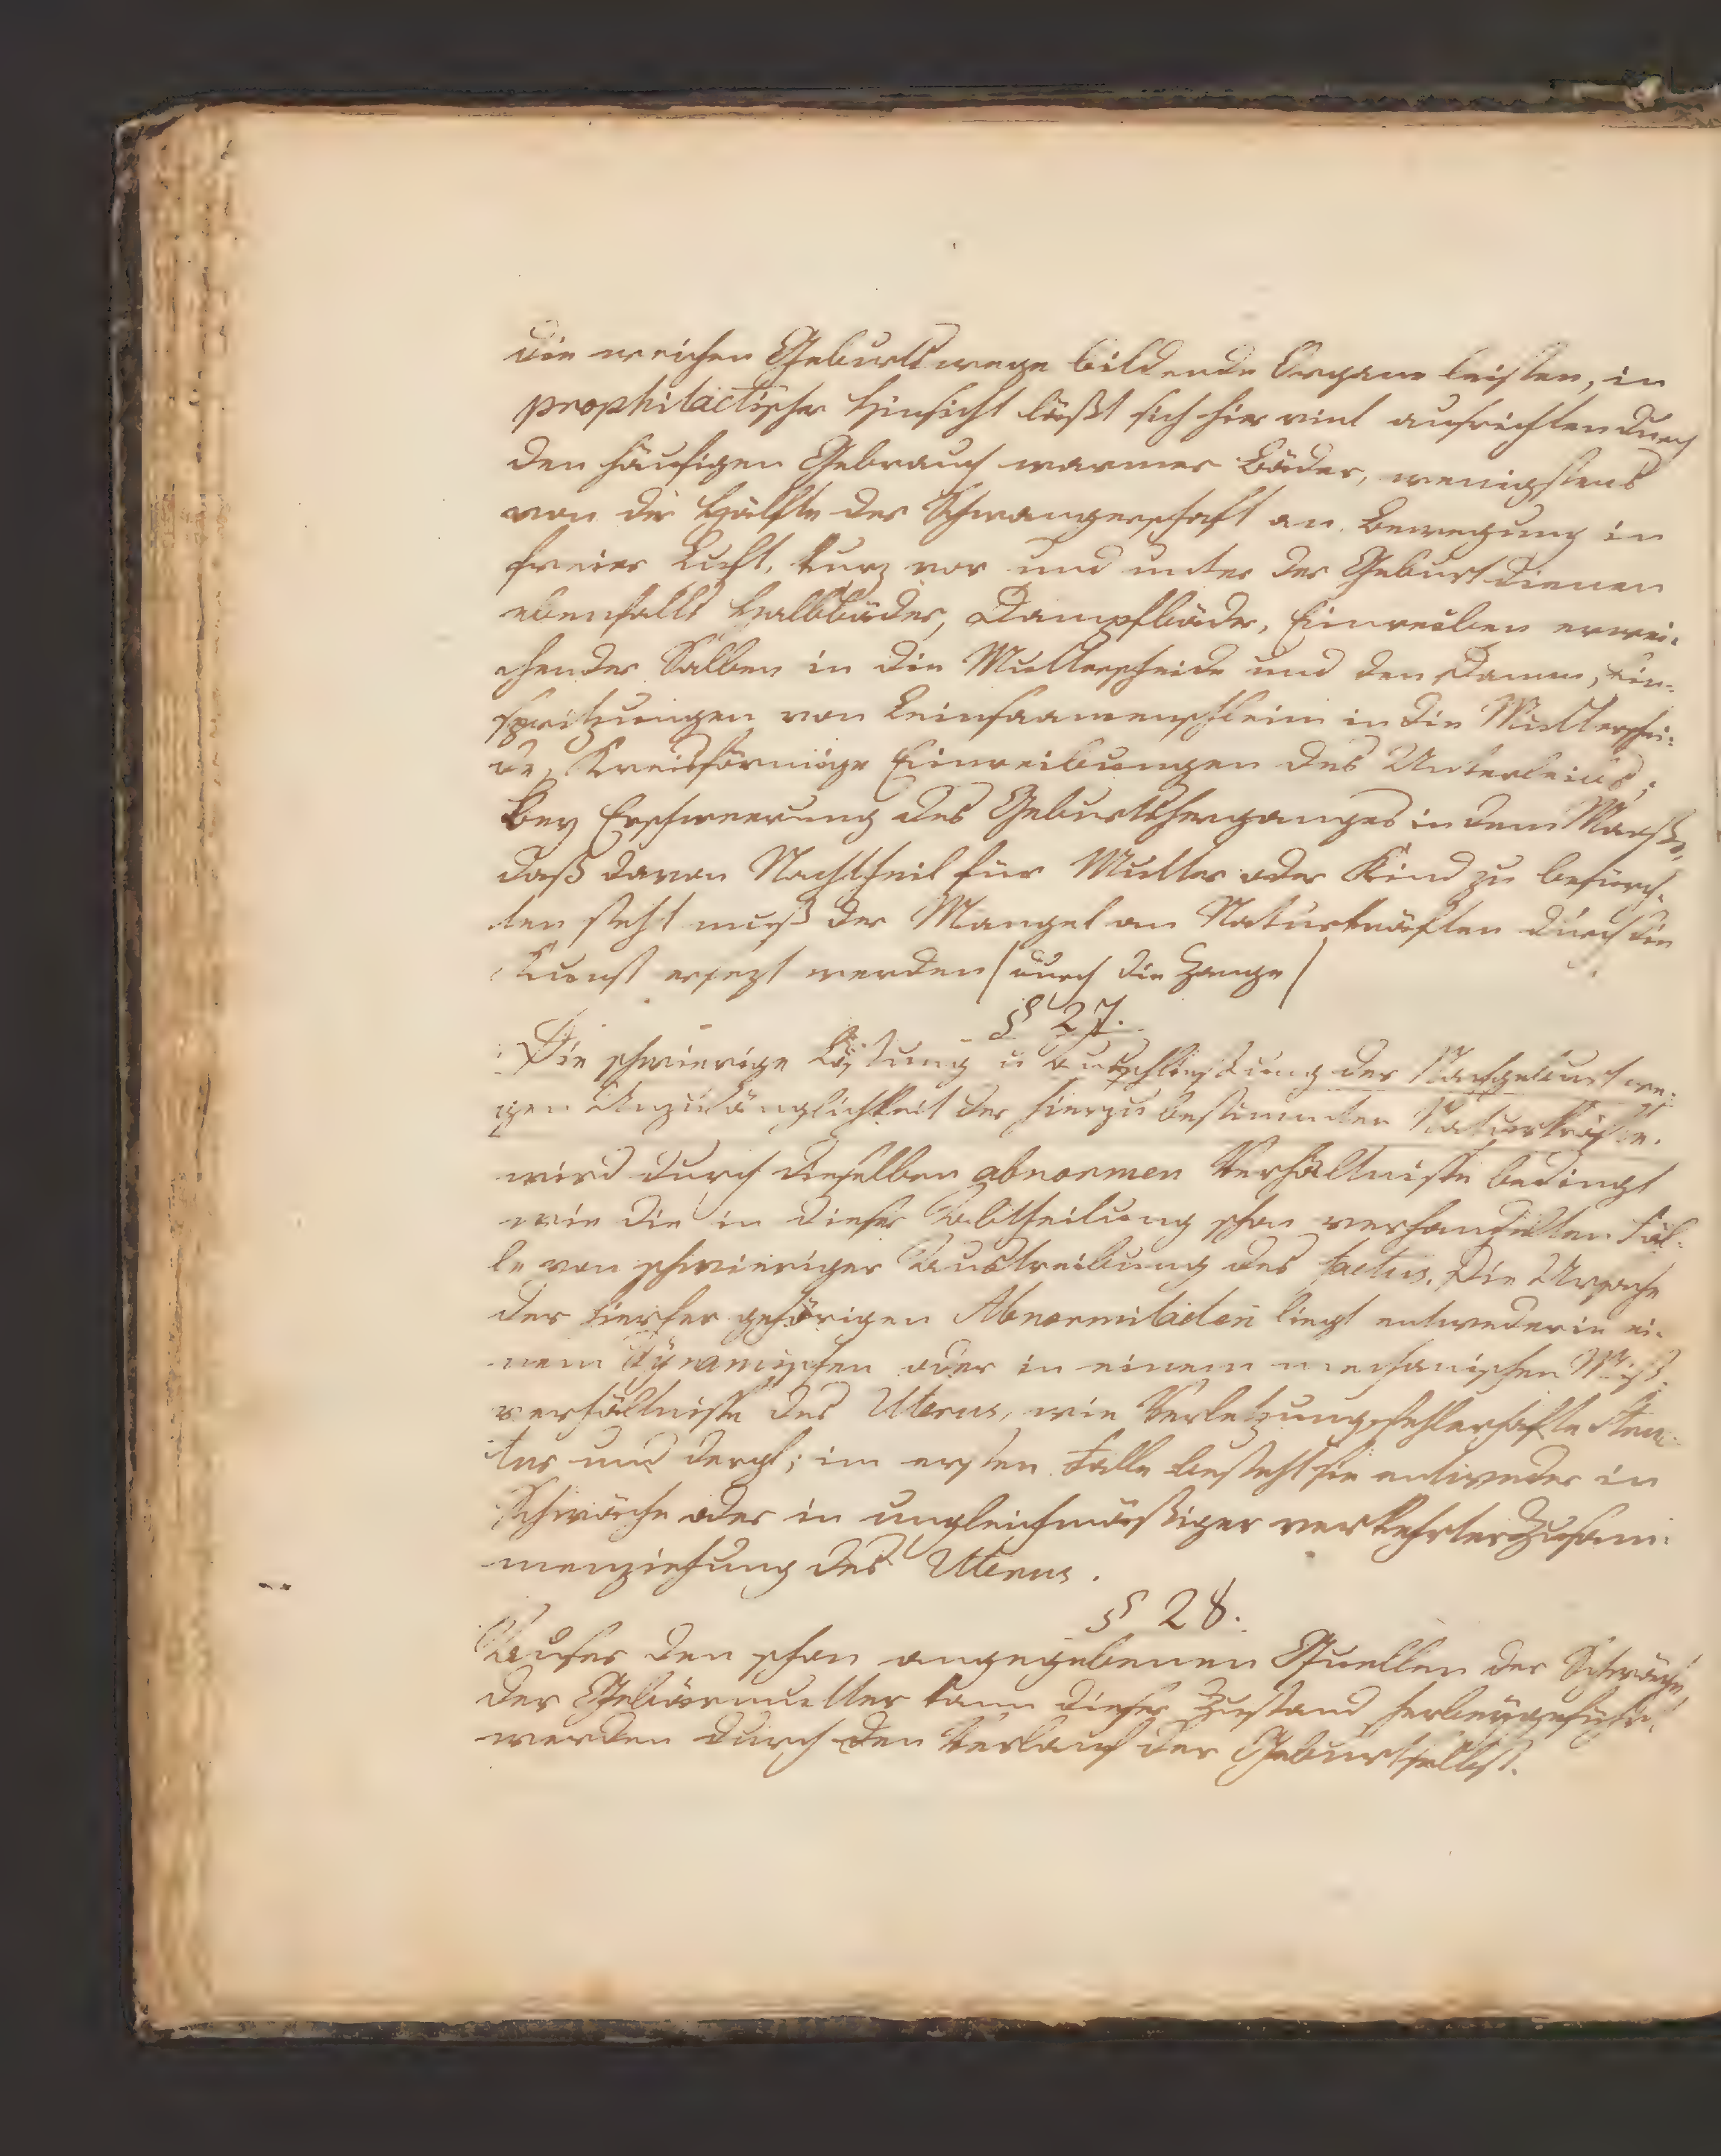 die weichen Geburtswege bildende Organe leisten, in
prophilactischer Hinsicht läßt sich hier viel ausrichten durch
den häufigen Gebrauch warmer Bäder, wenigstens
von der Hälfte der Schwangerschaft an Bewegung in
freier Luft, kurz vor und unter der Geburt dienen
ebenfalls Halbbäder, Dampfbäder, Einreiben erwei-
chender Salben in die Mutterscheide und den Damm, Ein-
spritzungen von Leinsaamenschleim in die Mutterschei-
de, Kreisförmige Einreibungen des Unterleibs;
Bey Erschwerung des Geburtsherganges in dem Maaße,
daß davon Nachtheil für Mutter oder Kind zu befürch-
ten steht muß der Mangel an Naturkräften durch die
Kunst ersezt werden (durch die Zange)
§ 27.
Die schwierige Lösung u Ausschließung der Nachgeburt we-
gen Unzulänglichkeit der hierzu bestimmten Naturkräfte.
wird durch dieselben abnormen Verhältnisse bedingt
wie die in dieser Abtheilung schon verhandelten Fäl-
le von schwieriger Austreibung des foetus. Die Ursache
der hierher gehörigen Abnormitäten liegt entweder in ei-
nem dynamischen oder in einem mechanischen Miß-
verhältnisse des Uterus, wie Verletzung, fehlerhafte
und dergl; im ersten Falle besteht sie entweder in
Schwäche oder in ungleichmäßiger verkehrter Zusam-
menziehung des Uterus.
§ 28.
Auser den schon angegebenen Quellen der Schwäche
der Gebärmutter kann dieser Zustand herbeygeführt
werden durch den Verlauf der Geburt selbst.